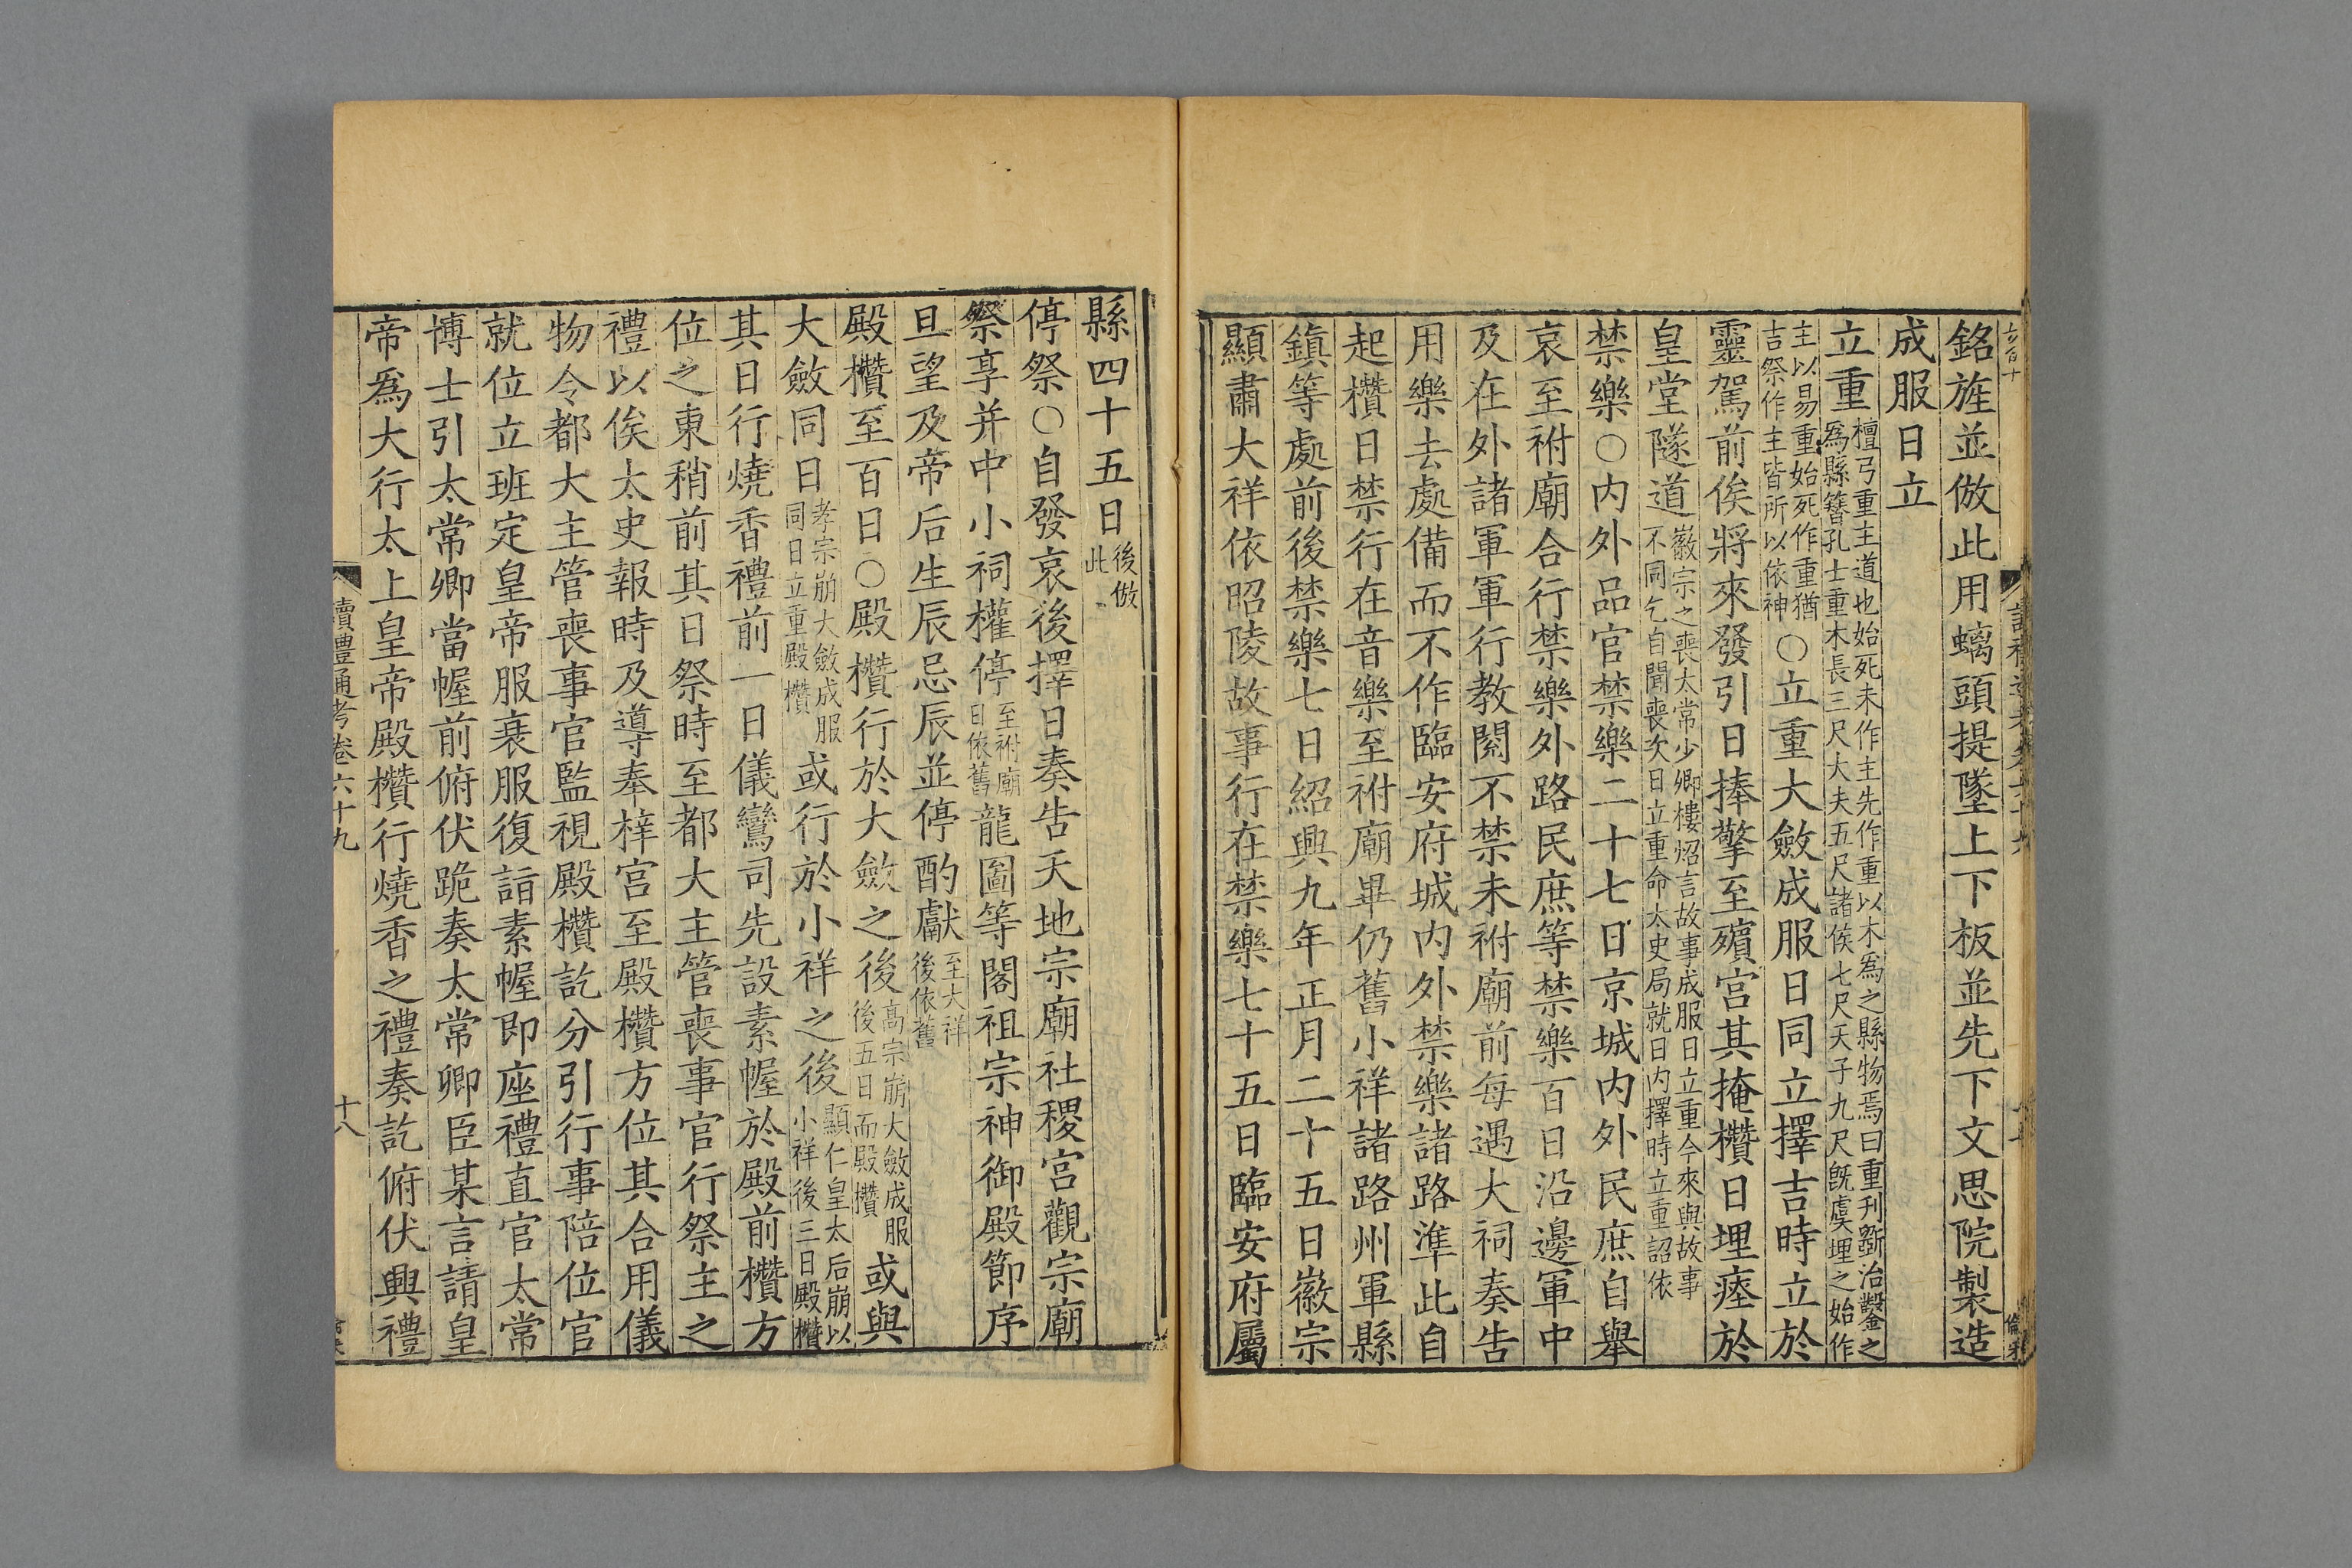 銘旌並倣此用螭頭提墜上下板並先下文思院製造
成服日立
立重檀弓重主道也始死未作主先作重以木爲之縣物焉曰重刊斲治鑿之
爲縣簪孔士重木長三尺大夫五尺諸侯七尺天子九尺旣虞埋之始作
主以易重始死作重猶
吉祭作主皆所以依神○立重大斂成服日同立擇吉時立於
靈駕前俟將來發引日捧擎至殯宮其掩欑日埋瘞於
皇堂隧道徽宗之喪太常少卿樓炤言故事成服日立重今來與故事
不同乞自聞喪次日立重命太史局就日內擇時立重詔依
禁樂○內外品官禁樂二十七日京城內外民庶自舉
哀至祔廟合行禁樂外路民庶等禁樂百日沿邊軍中
及在外諸軍軍行教閱不禁未祔廟前每遇大祠奏告
用樂去處備而不作臨安府城內外禁樂諸路準此自
起欑日禁行在音樂至祔廟畢仍舊小祥諸路州軍縣
鎮等處前後禁樂七日紹興九年正月二十五日徽宗
顯肅大祥依昭陵故事行在禁樂七十五日臨安府屬
縣四十五日後倣
此
停祭○自發哀後擇日奏告天地宗廟社稷宮觀宗廟
祭享并中小祠權停至祔廟
日依舊龍圖等閣祖宗神御殿節序
旦望及帝后生辰忌辰並停酌獻至大祥
後依舊
殿欑至百日○殿欑行於大斂之後高宗崩大斂成服
後五日而殿欑或與
大斂同日孝宗崩大斂成服
同日立重殿欑或行於小祥之後顯仁皇太后崩以
小祥後三日殿欑
其日行燒香禮前一日儀鸞司先設素幄於殿前欑方
位之東稍前其日祭時至都大主管喪事官行祭主之
禮以俟太史報時及導奉梓宮至殿欑方位其合用儀
物令都大主管喪事官監視殿欑訖分引行事陪位官
就位立班定皇帝服衰服復詣素幄即座禮直官太常
博士引太常卿當幄前俯伏跪奏太常卿臣某言請皇
帝爲大行太上皇帝殿欑行燒香之禮奏訖俯伏興禮
讀禮通考卷六十九
十八